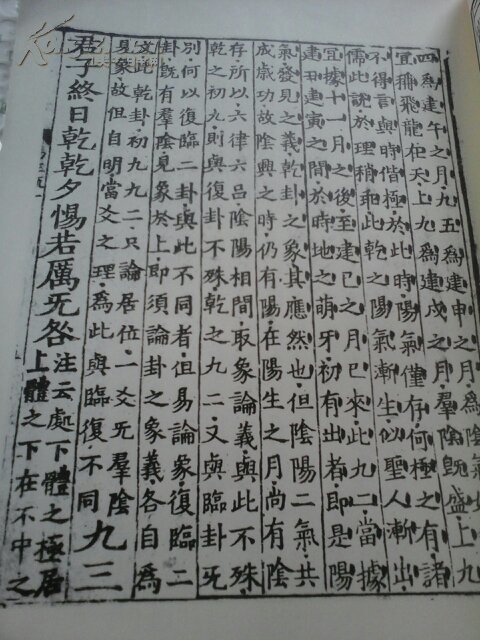 四爲建午之月九五爲建申之月爲陰
宜稱飛龍在天上九爲建戌之月羣陰旣盛上九
不得言與時偕極於此時陽氣僅存何極之有諸
儒此說於理稍乖此乾之陽氣漸生似聖人漸出
宜據十一月之後至建巳之月已來此九二當據
建丑建寅之間於時地之萌牙初有出者即是陽
氣發見之義乾卦之象其應然也但陰陽二氣共
成歲功故陰興之時仍有陽在陽生之月尚有陰
存所以六律六呂陰陽相間取象論義與此不殊
乾之初九則與復卦不殊乾之九二又與臨卦无
別何以復臨二卦與此不同者但易論象復臨二
卦旣有羣陰見象於上即須論卦之象義各自爲
文此乾卦初九九二只論居位一爻无羣陰
見象故但自明當爻之理爲此與臨復不同 九三
君子終日乾乾夕惕若厲无咎 注云處下體之極居
上體之下在不中之